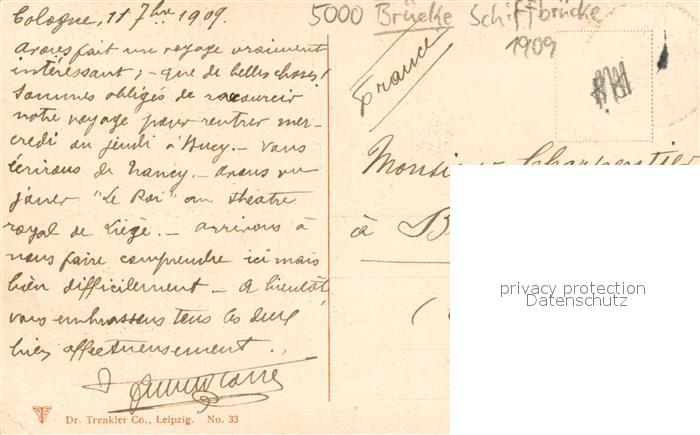 Cologne, 11 7bre 1909.
5000 Brücke Schiffbrücke
1909
France
Avons fait un voyage vraiment
intéressant; - que de belles choses!
Sommes obligés de raccourcir
notre voyage pour rentrer mer-
credi ou jeudi à Bucy. - Vous
écrirons de Nancy. - Avons vu
jouer "Le Roi" au théatre
royal de Liége. - arrivons à
nous faire comprendre ici mais
bien difficilement - A bientôt
vous embrassons tous les deux
bien affectueusement.
Monsieur Charpentier
à B
privacy protection
Datenschutz
Dr. Trenkler Co., Leipzig. No. 33